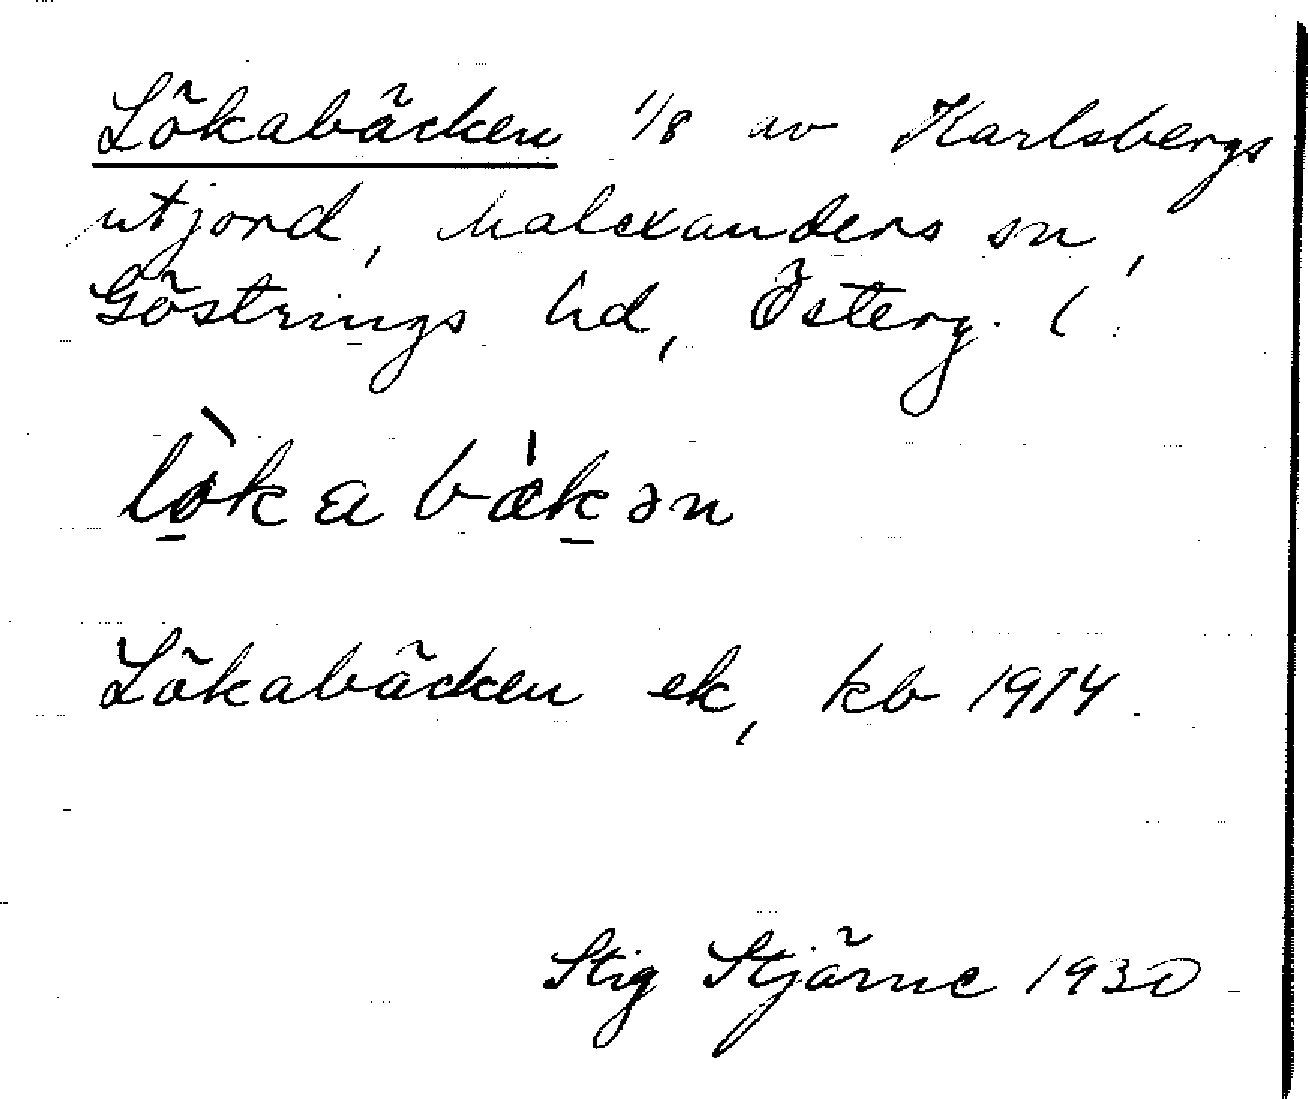 Lökabäcken 1/8 av Karlsbergs
utjord, Malexanders sn,
Göstrings hd, Österg. l.
lȯ̱̀k a bæ̍ḵən
Lökabäcken ek, kb 1914.
Stig Stjärne 1930